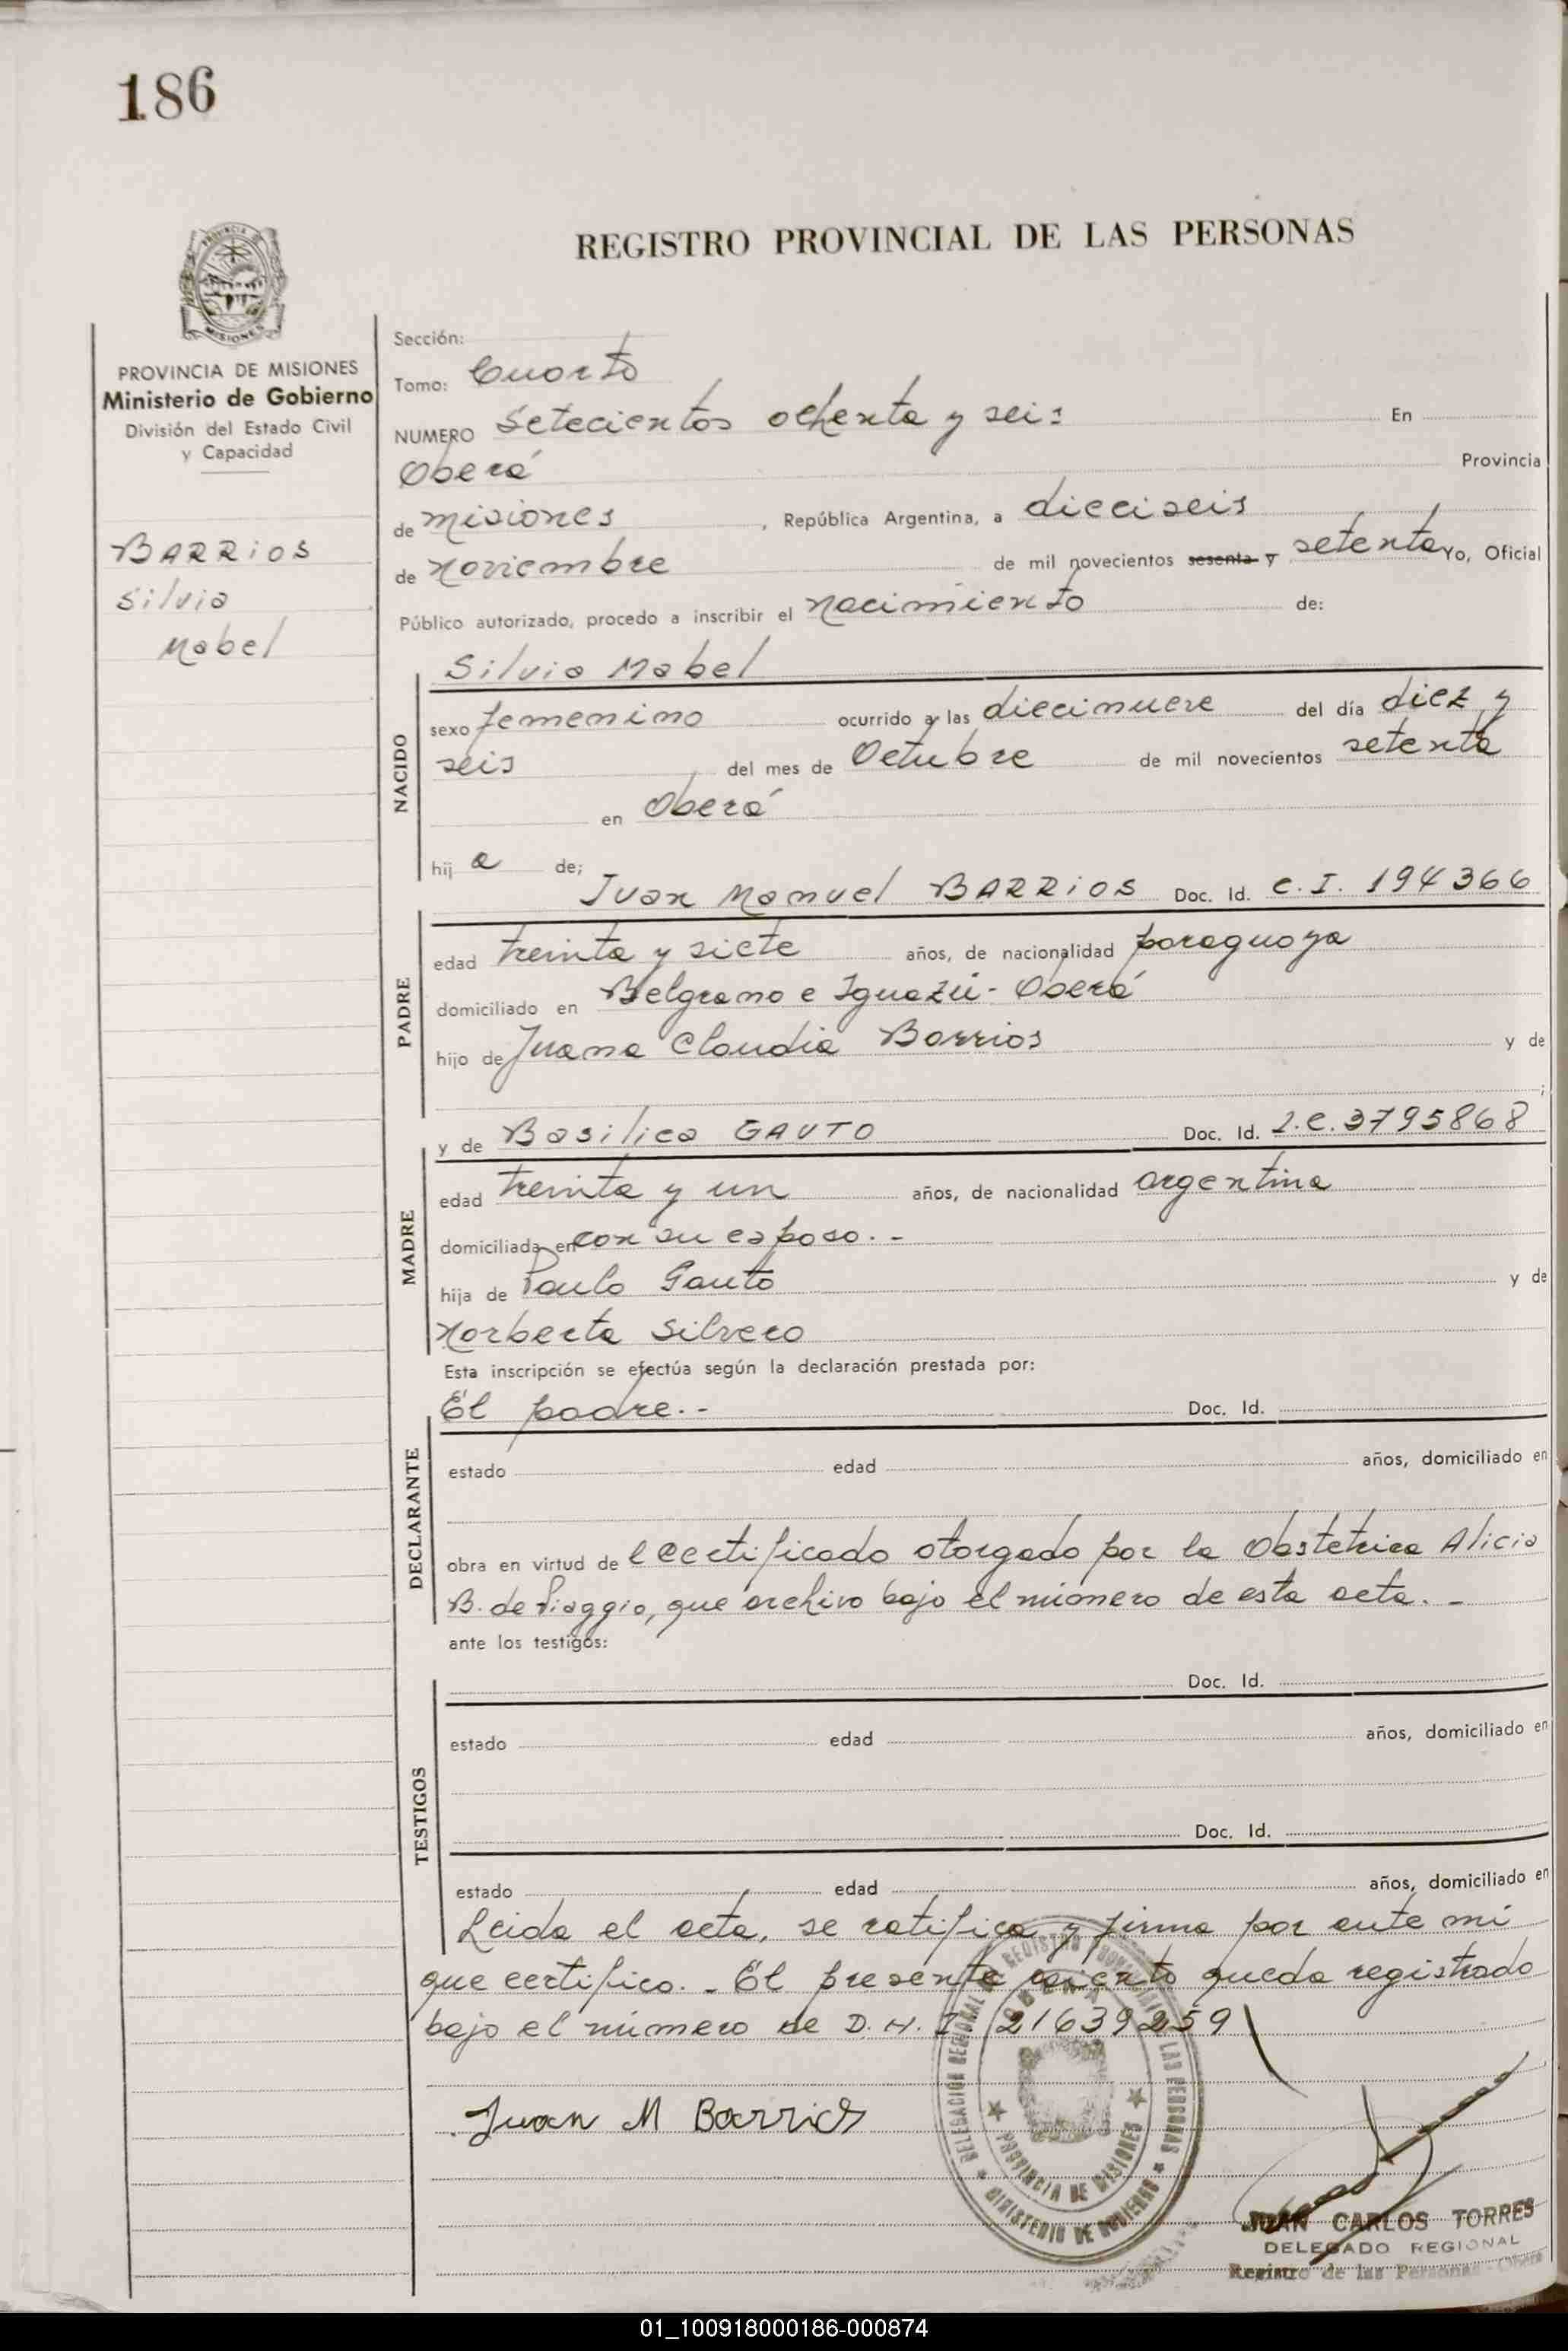 186
REGISTRO PROVINCIAL DE LAS PERSONAS
MISIONES
PROVINCIA DE MISIONES
Ministerio de Gobierno
División del Estado Civil
y Capacidad
BARRiOS
Silvia
Mabel
Sección:
Tomo: Cuarto
NUMERO Setecientos ochenta y seis En
Oberá Provincia
de misiones, República Argentina, a dieciseis
de noviembre de mil novecientos sesenta y setenta Yo, Oficial
Público autorizado, procedo a inscribir el nacimiento de:
Silvia Mabel
NACIDO
sexo femenino ocurrido a las diecinueve del día diez y
seis del mes de Octubre de mil novecientos setenta
en Oberá
hij a de;
Juan Manuel BARRiOS Doc. Id. C.I. 194366
PADRE
edad treinta y siete años, de nacionalidad paraguaya
domiciliado en Belgrano e Iguazú - Oberá
hijo de Juana Claudia Barrios y de
;
y de Basilica GAUTO Doc. Id. L.C. 3795868
MADRE
edad treinta y un años, de nacionalidad argentina
domiciliada en con su esposo. -
hija de Paulo Gauto y de
Norberta Silvero
Esta inscripción se efectúa según la declaración prestada por:
El padre. - Doc. Id.
DECLARANTE
estado edad años, domiciliado en
obra en virtud de l certificado otorgado por la Obstetrica Alicia
B. de Piaggio, que archivo bajo el número de esta acta. -
ante los testigos:
Doc. Id.
TESTIGOS
estado edad años, domiciliado en
Doc. Id.
estado edad años, domiciliado en
Leida el acta, se ratifica y firma por ante mi
que certifico. - El presente asiento queda registrado
bajo el número de D.N.I. 21639259
Juan M Barrios
PROVINCIA DE MISIONES
MINISTERIO DE GOBIERNO
JUAN CARLOS TORRES
DELEGADO REGIONAL
Registro de las Personas - Oberá
01_100918000186-000874